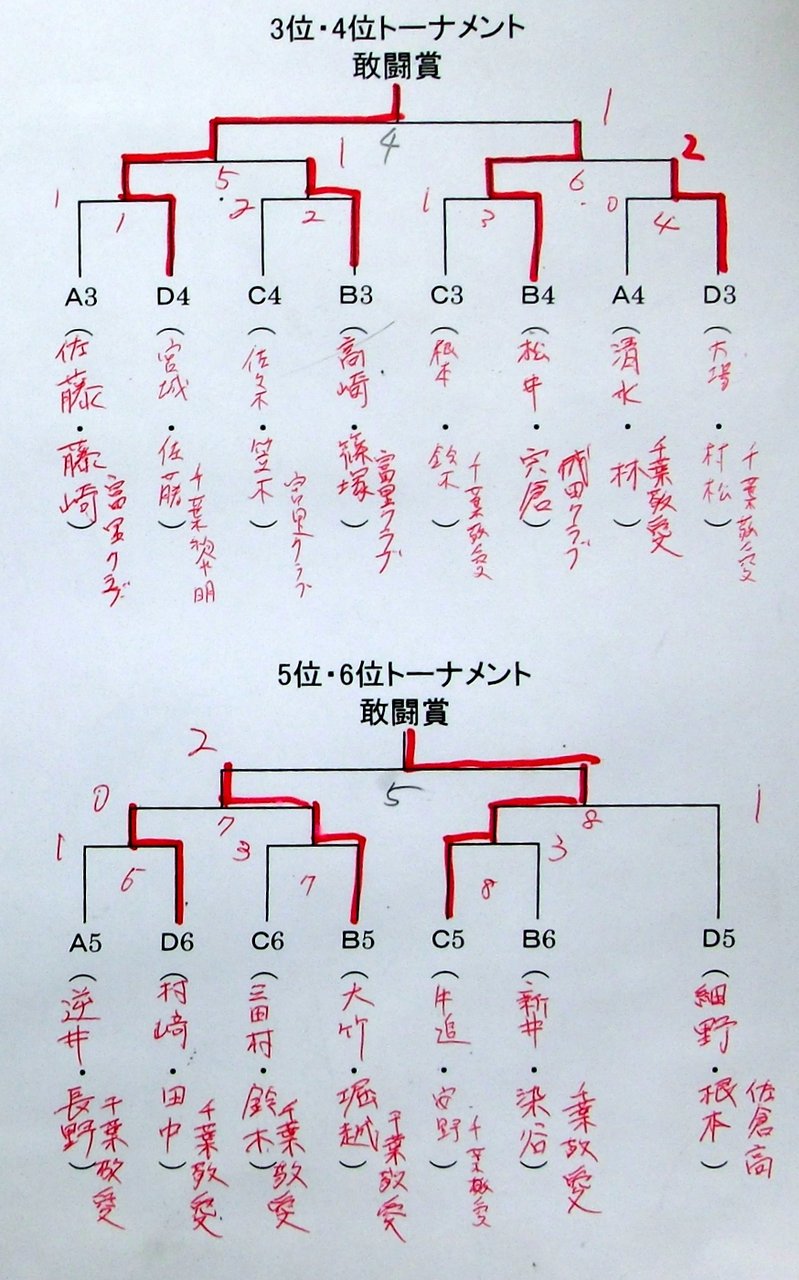 3位・4位トーナメント
敢闘賞
1
4
1
2
5
6
1
2
1
0
1
2
3
4
A3 D4 C4 B3 C3 B4 A4 D3
(佐藤・藤崎) 富里クラブ
(宮城・佐藤) 千葉黎明
(佐々木・笠木) 富里クラブ
(高崎・篠塚) 富里クラブ
(根本・鈴木) 千葉敬愛
(松中・宍倉) 成田クラブ
(清水・林) 千葉敬愛
(大場・村松) 千葉敬愛
5位・6位トーナメント
敢闘賞
2
5
0
7
8
1
1
3
3
6
7
8
A5 D6 C6 B5 C5 B6 D5
(逆井・長野) 千葉敬愛
(村崎・田中) 千葉敬愛
(三田村・鈴木) 千葉敬愛
(大竹・堀越) 千葉敬愛
(牛追・安野) 千葉敬愛
(新井・染谷) 千葉敬愛
(細野・根本) 佐倉高